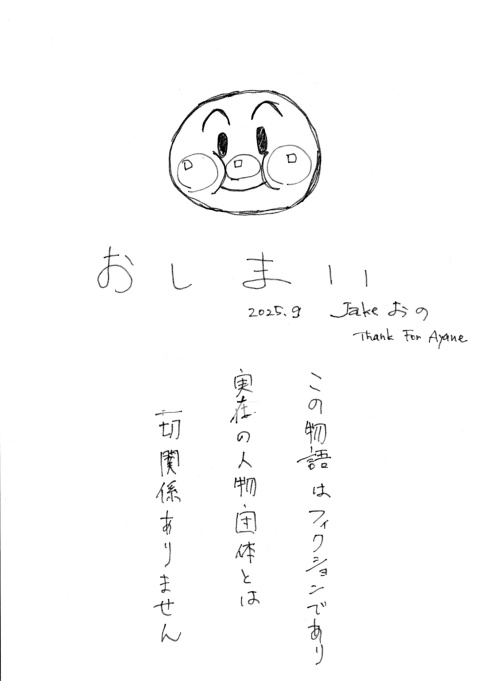 おしまい
2025.9 Jake おの
Thank For Ayane
この物語はフィクションであり
実在の人物・団体とは
一切関係ありません